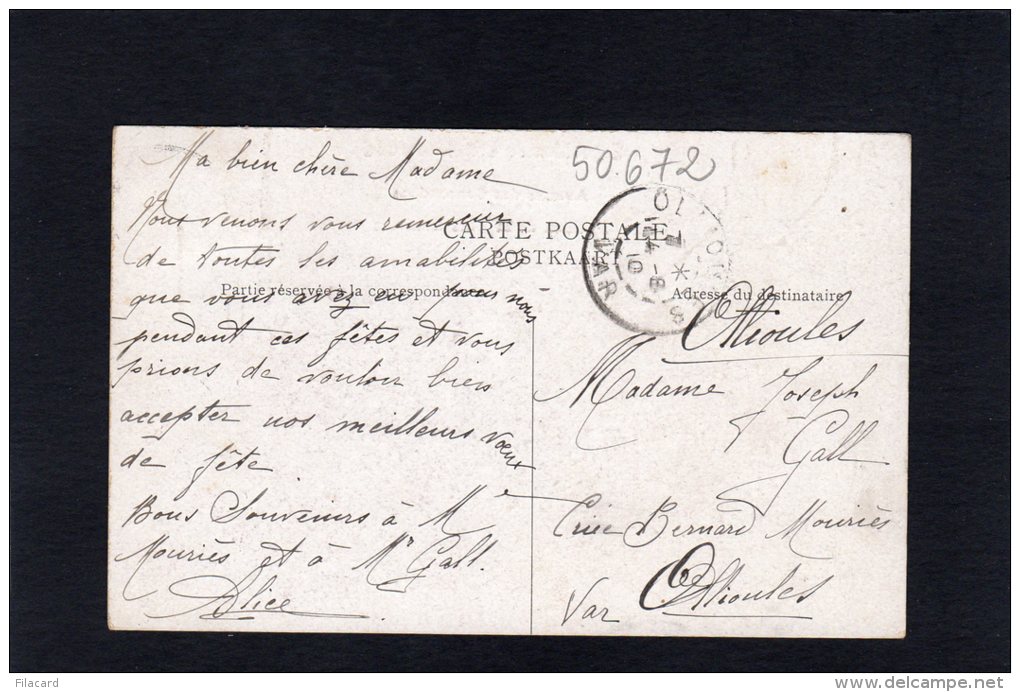 50.672
CARTE POSTALE
POSTKAART
Partie réservée à la correspondance
Adresse du destinataire
Ma bien chère Madame
Nous venons vous remercier
de toutes les amabilités
que vous avez eu pour nous
pendant ces fêtes et vous
prions de vouloir bien
accepter nos meilleurs vœux
de fête
Bons Souvenirs à Me
Mouriès et à Mr Gall.
Alice
OLLIOULES
VAR
Ollioules
Madame Joseph
Gall
Bernard Mouriès
Ollioules
Var
Filacard
www.delcampe.net